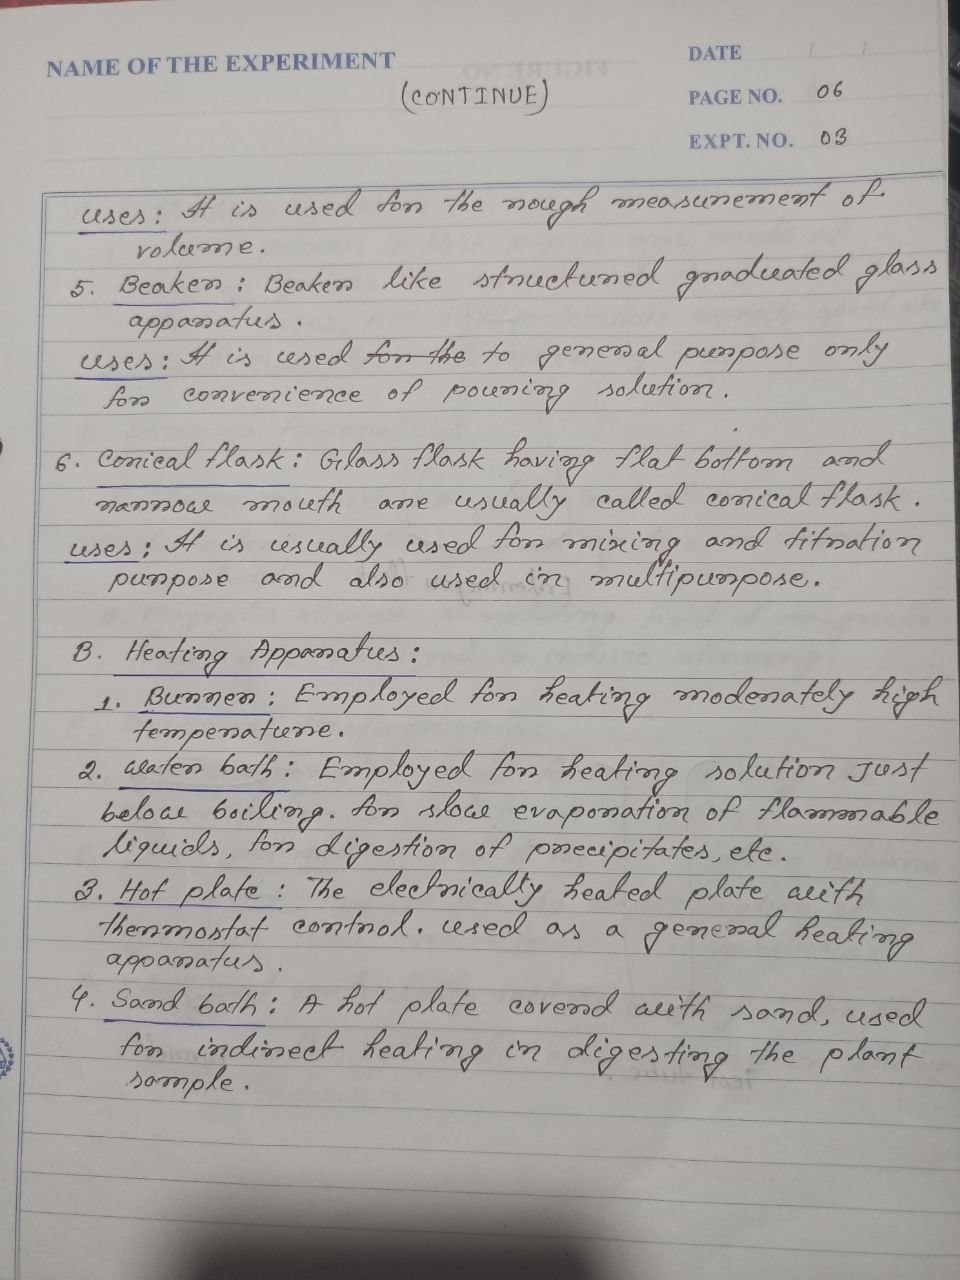 NAME OF THE EXPERIMENT
(CONTINUE)
DATE / /
PAGE NO. 06
EXPT. NO. 03
uses: It is used for the rough measurement of
volume.
5. Beaker: Beaker like structured graduated glass
apparatus.
uses: It is used for the to general purpose only
for convenience of pouring solution.
6. Conical flask: Glass flask having flat bottom and
narrow mouth are usually called conical flask.
uses: It is usually used for mixing and titration
purpose and also used in multipurpose.
B. Heating Apparatus:
1. Burner: Employed for heating moderately high
temperature.
2. Water bath: Employed for heating solution Just
below boiling. for slow evaporation of flammable
liquids, for digestion of precipitates, etc.
3. Hot plate: The electrically heated plate with
thermostat control. used as a general heating
apparatus.
4. Sand bath: A hot plate coverd with sand, used
for indirect heating in digesting the plant
sample.